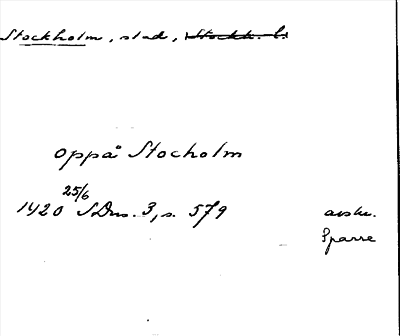 Stockholm, stad, Stockh. l.
oppå Stocholm
1420 25/6 SDns. 3, s. 579
avskr.
Sparre